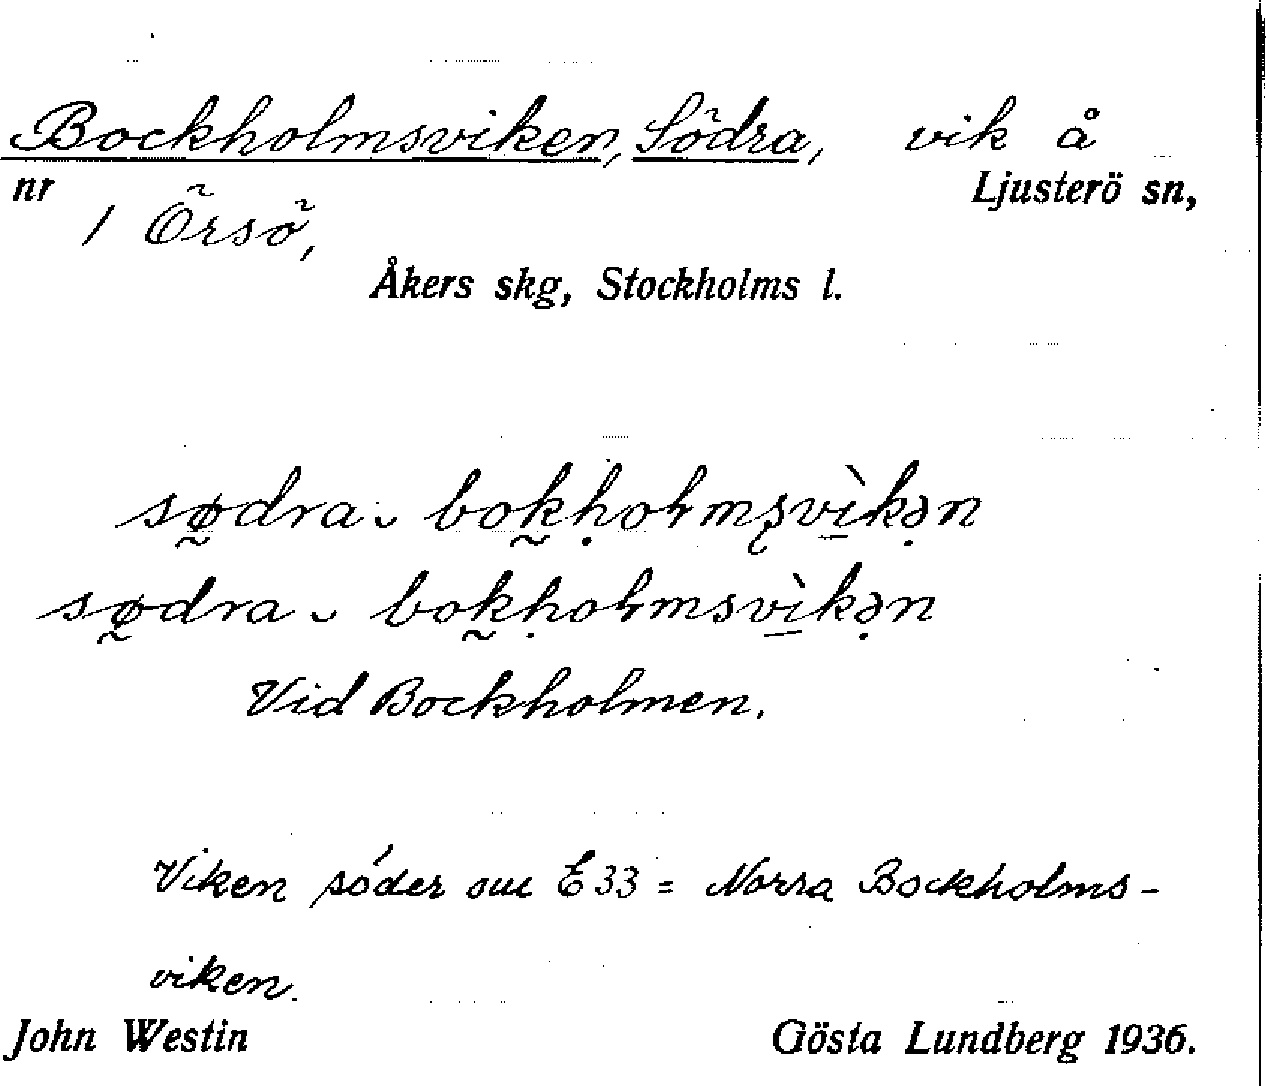 Bockholmsviken, Södra, vik å
nr Ljusterö sn,
1 Örsö,
Åkers skg, Stockholms l.
sødra bokholmsvikən
sødra bokholmsvikən
Vid Bockholmen.
Viken söder om E33 = Norra Bockholms-
viken.
John Westin Gösta Lundberg 1936.